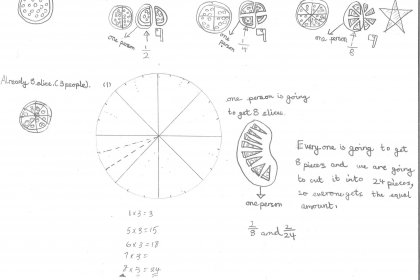 one person
1/2
one person
1/4
one person
1/8
Already 8 slice. (3 people).
(1)
one person is going
to get 8 slices
Everyone is going to get
8 pieces and we are going
to cut it into 24 pieces,
so everyone gets the equal
amount.
one person
and 2/24
1x3=3
5x3=15
6x3=18
7x3=
8x3=24